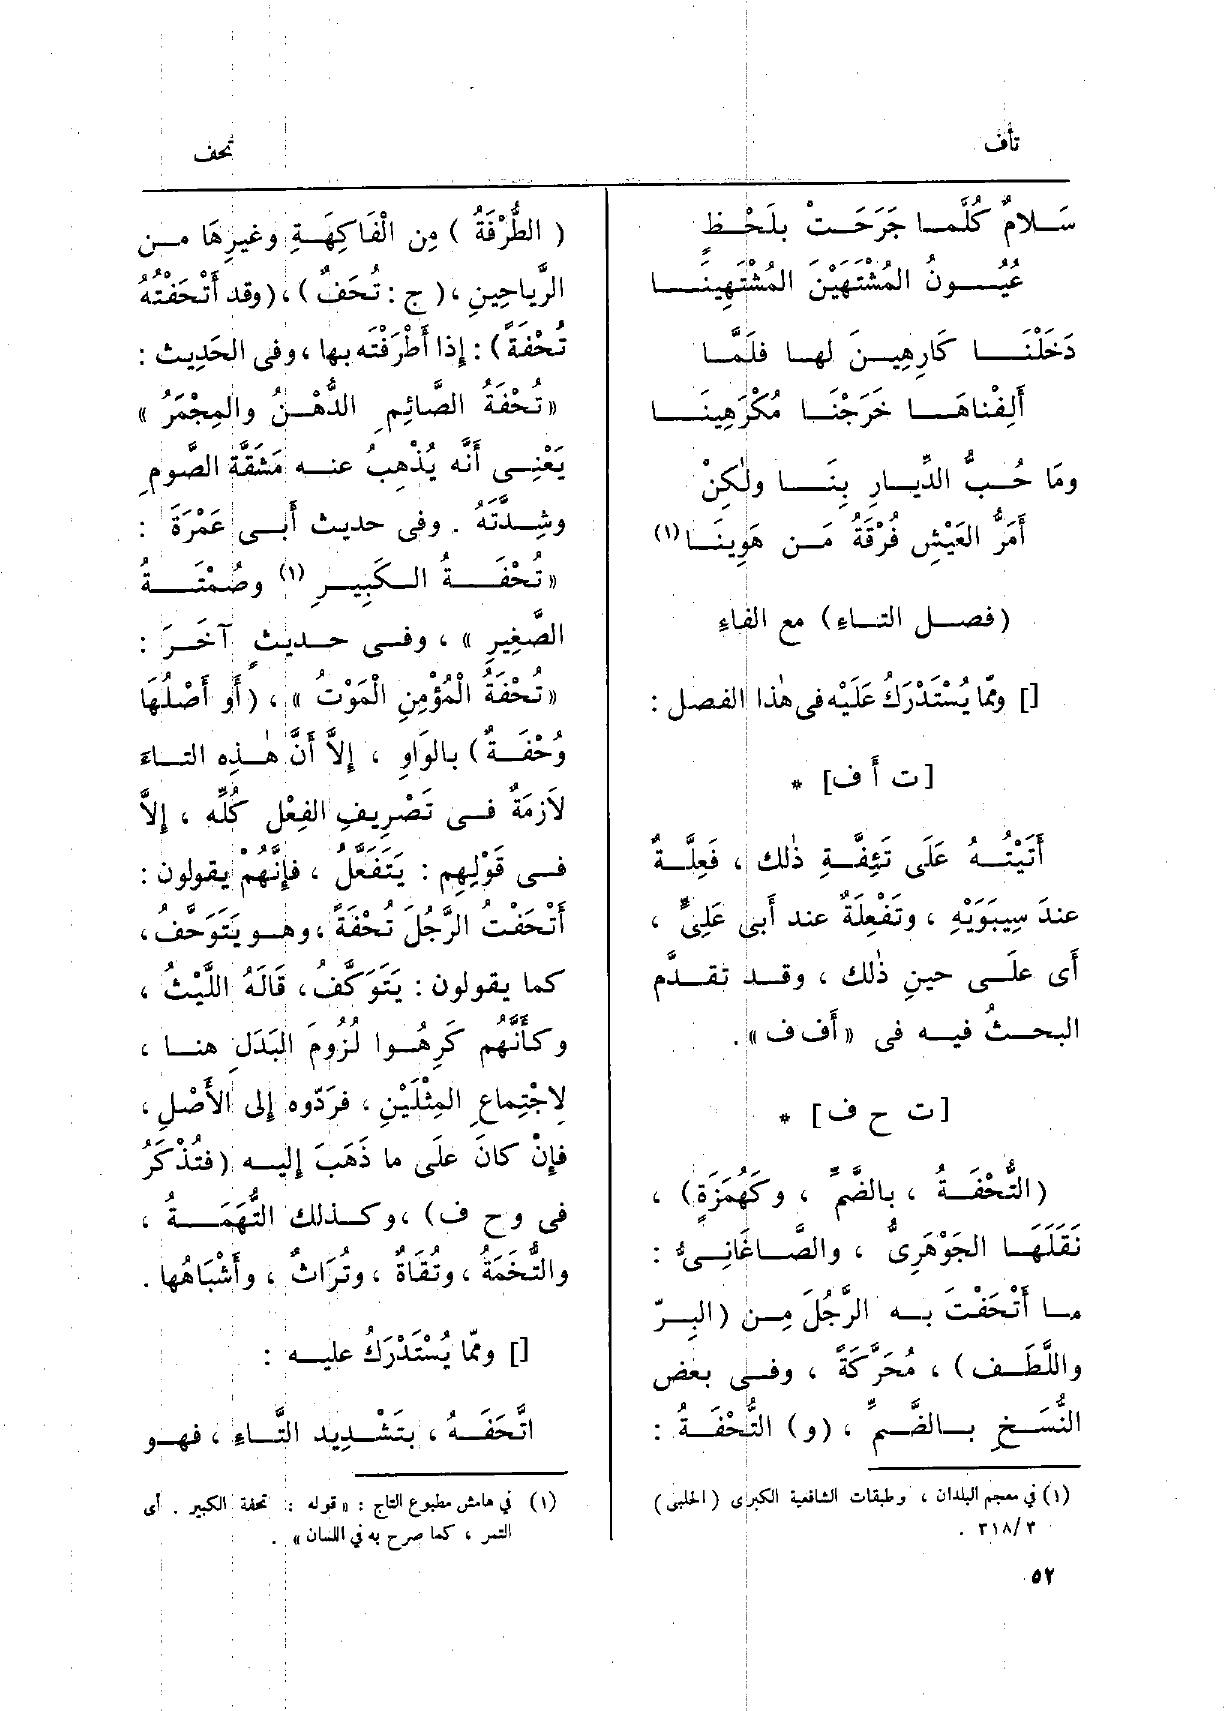 تأف
تحف
سَـلامٌ كُلَّمـا جَرَحَـتْ بلَحْـظٍ
عُيُـونُ المُشْتَهَيْنَ المُشْتَهِينَـا
دَخَلْنَـا كَارِهِيـنَ لهـا فلَمَّا
أَلِفْناهَـا خَرَجْنَـا مُكْرَهِينَـا
ومَا حُـبُّ الدِّيـارِ بِنَـا ولٰكِنْ
أَمَرُّ العَيْشِ فُرْقَةُ مَـن هَوِينَـا (١)
(فصـل التـاء) مع الفاءِ
[] وممّا يُسْتَدْرَكُ عَلَيْه فى هٰذا الفصل :
[ت أ ف] *
أَتَيْتُـهُ عَلَى تَئِفَّـةِ ذٰلك ، فَعِلَّـةٌ
عندَ سِيبَوَيْهِ ، وتَفْعِلَةٌ عند أَبى عَلِىٍّ ،
أَى علَـى حينِ ذٰلك ، وقـد تقـدَّم
البحـثُ فيـه فى «أَف ف» .
[ت ح ف] *
(التُّحْفَـةُ ، بالضَّمِّ ، وكَهُمَزَةٍ) ،
نَقَلَهَـا الجَوْهَرِىُّ ، والصَّـاغَانِـىُّ :
مـا أَتْحَفْتَ بـه الرَّجُلَ مِـن (البِـرِّ
واللَّطَـف) ، مُحَرَّكَةً ، وفـى بعض
النُّسَـخِ بـالضَّـمِّ ، (و) التُّحْفَـةُ :
(١) في معجم البلدان ، وطبقات الشافعية الكبرى (الحلبى)
٣١٨/٣ .
٥٢
( الطُّرْفَةُ ) مِن الْفَاكِهَـةِ وغيرِهَا مـن
الرَّياحِينِ ، ( ج : تُحَفٌ ) ، (وقد أَتْحَفْتُهُ
تُحْفَةً) : إذا أَطْرَفْتَه بها ، وفى الحَدِيث :
«تُحْفَةُ الصَّائِمِ الدُّهْنُ والمِجْمَرُ »
يَعْنِـى أَنَّه يُذْهِبُ عنـه مَشَقَّةَ الصَّومِ
وشِـدَّتَهُ . وفى حديث أَبـى عَمْرَةَ :
«تُحْفَـةُ الـكَبِيـرِ (١) وصُمْتَـةُ
الصَّغِيرِ » ، وفـى حـديثٍ آخَـرَ :
«تُحْفَةُ الْمُؤْمِنِ الْمَوْتُ » ، (أَو أَصْلُهَا
وُحْفَـةٌ) بالوَاوِ ، إِلاَّ أَنَّ هٰـذِه التـاءَ
لاَزِمَةٌ فـى تَصْرِيفِ الفِعْلِ كُلِّه ، إِلاَّ
فـى قَوْلِهِم : يَتَفَعَّلُ ، فإِنَّهُمْ يقولون :
أَتْحَفْتُ الرَّجُلَ تُحْفَةً ، وهـو يَتَوَحَّفُ ،
كما يقولون : يَتَوَكَّفُ ، قَالَهُ اللَّيْثُ ،
وكأَنَّهُم كَرِهُـوا لُزُومَ البَدَلِ هنـا ،
لِاجْتِماعِ المِثْلَيْنِ ، فرَدّوه إلى الأَصْلِ ،
فإِنْ كانَ علَى ما ذَهَبَ إِليـه (فتُذْكَرُ
فى وح ف) ، وكـذلك التُّهَمَـةُ ،
والتُّخَمَةُ ، وتُقَاةٌ ، وتُرَاثٌ ، وأَشْبَاهُها .
[] وممّا يُسْتَدْرَكُ عليـه :
اتَّحَفَـهُ ، بتَشْـديد التَّـاءِ ، فهـو
(١) في هامش مطبوع التاج : «قوله : تحفة الكبير . أى
التمر ، كما صرح به في اللسان » .